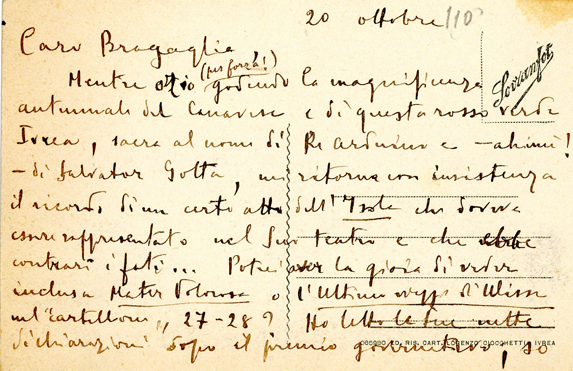 20 ottobre 110
Caro Bragaglia
(per forza!)
Mentre ozio godendo la magnificenza
autunnale del Canavese e di questa rosso verde
Ivrea, sacra al nome di Re Arduino e - ahimé!
- di Salvator Gotta, mi ritorna con insistenza
il ricordo di un certo atto dell'Isola che doveva
essere rappresentato nel Suo teatro e che ebbe
contrari i fati... Potrei aver la gioia di veder
inclusa Mater Dolorosa o l'Ultimo viaggio d'Ulisse
nel "cartellone" 27-28? Ho letto le Sue nette
dichiarazioni dopo il premio governativo, so
Lovranfot
086980 ED. RIS. CART. LORENZO CIOCCHETTI, IVREA